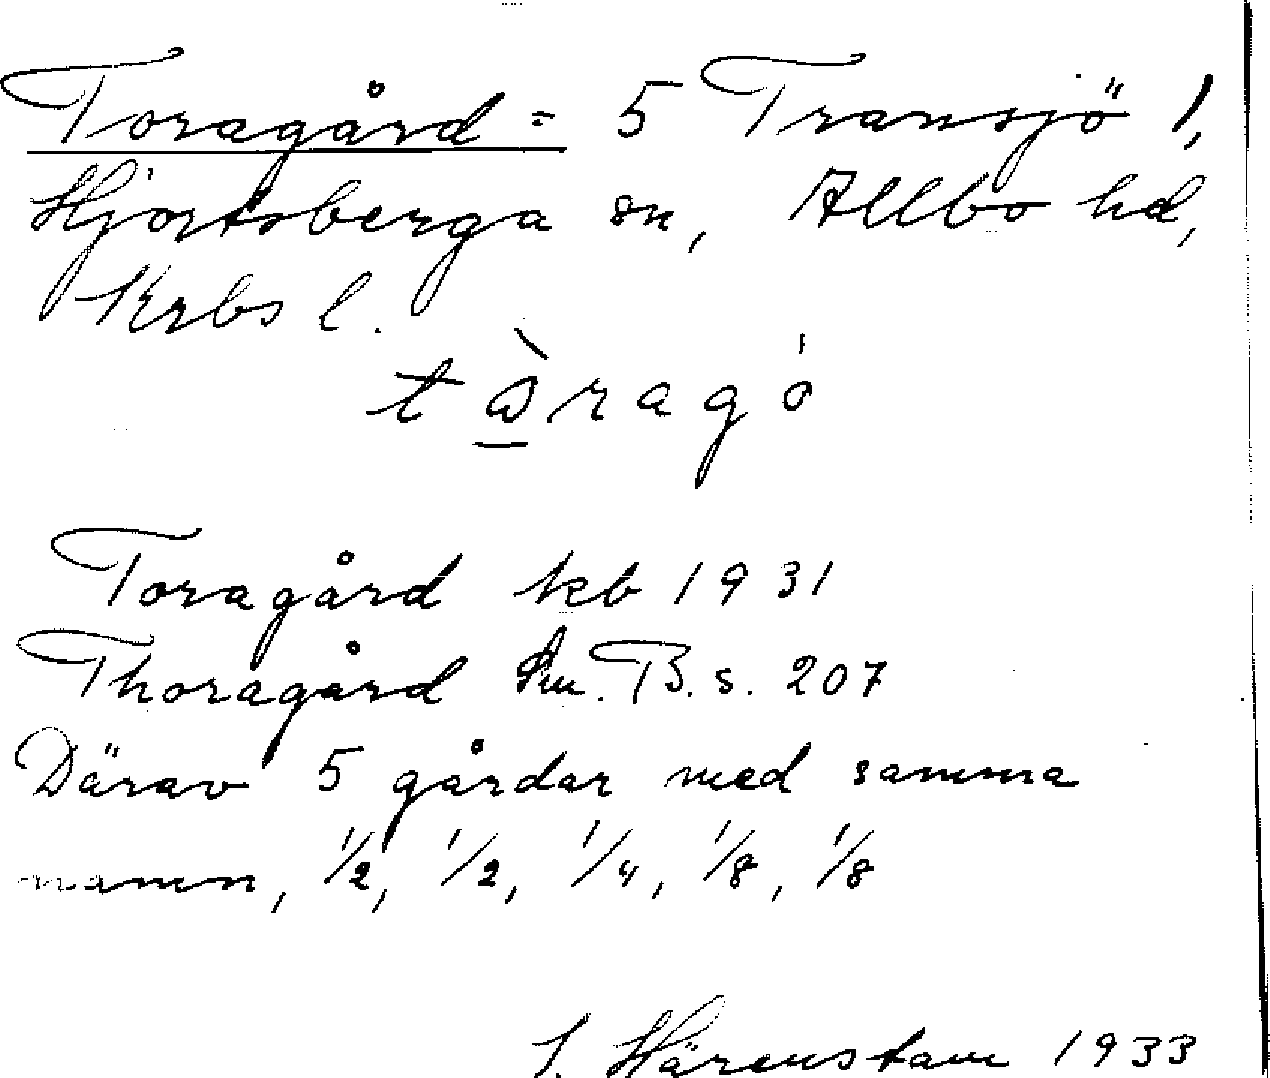 Toragård = 5 Transjö 1,
Hjortsberga sn, Allbo hd,
Krbs l.
tàragó
Toragård kb 1931
Thoragård Sm. B. s. 207
Därav 5 gårdar med samma
namn, 1/2, 1/2, 1/4, 1/8, 1/8
Härenstam 1933